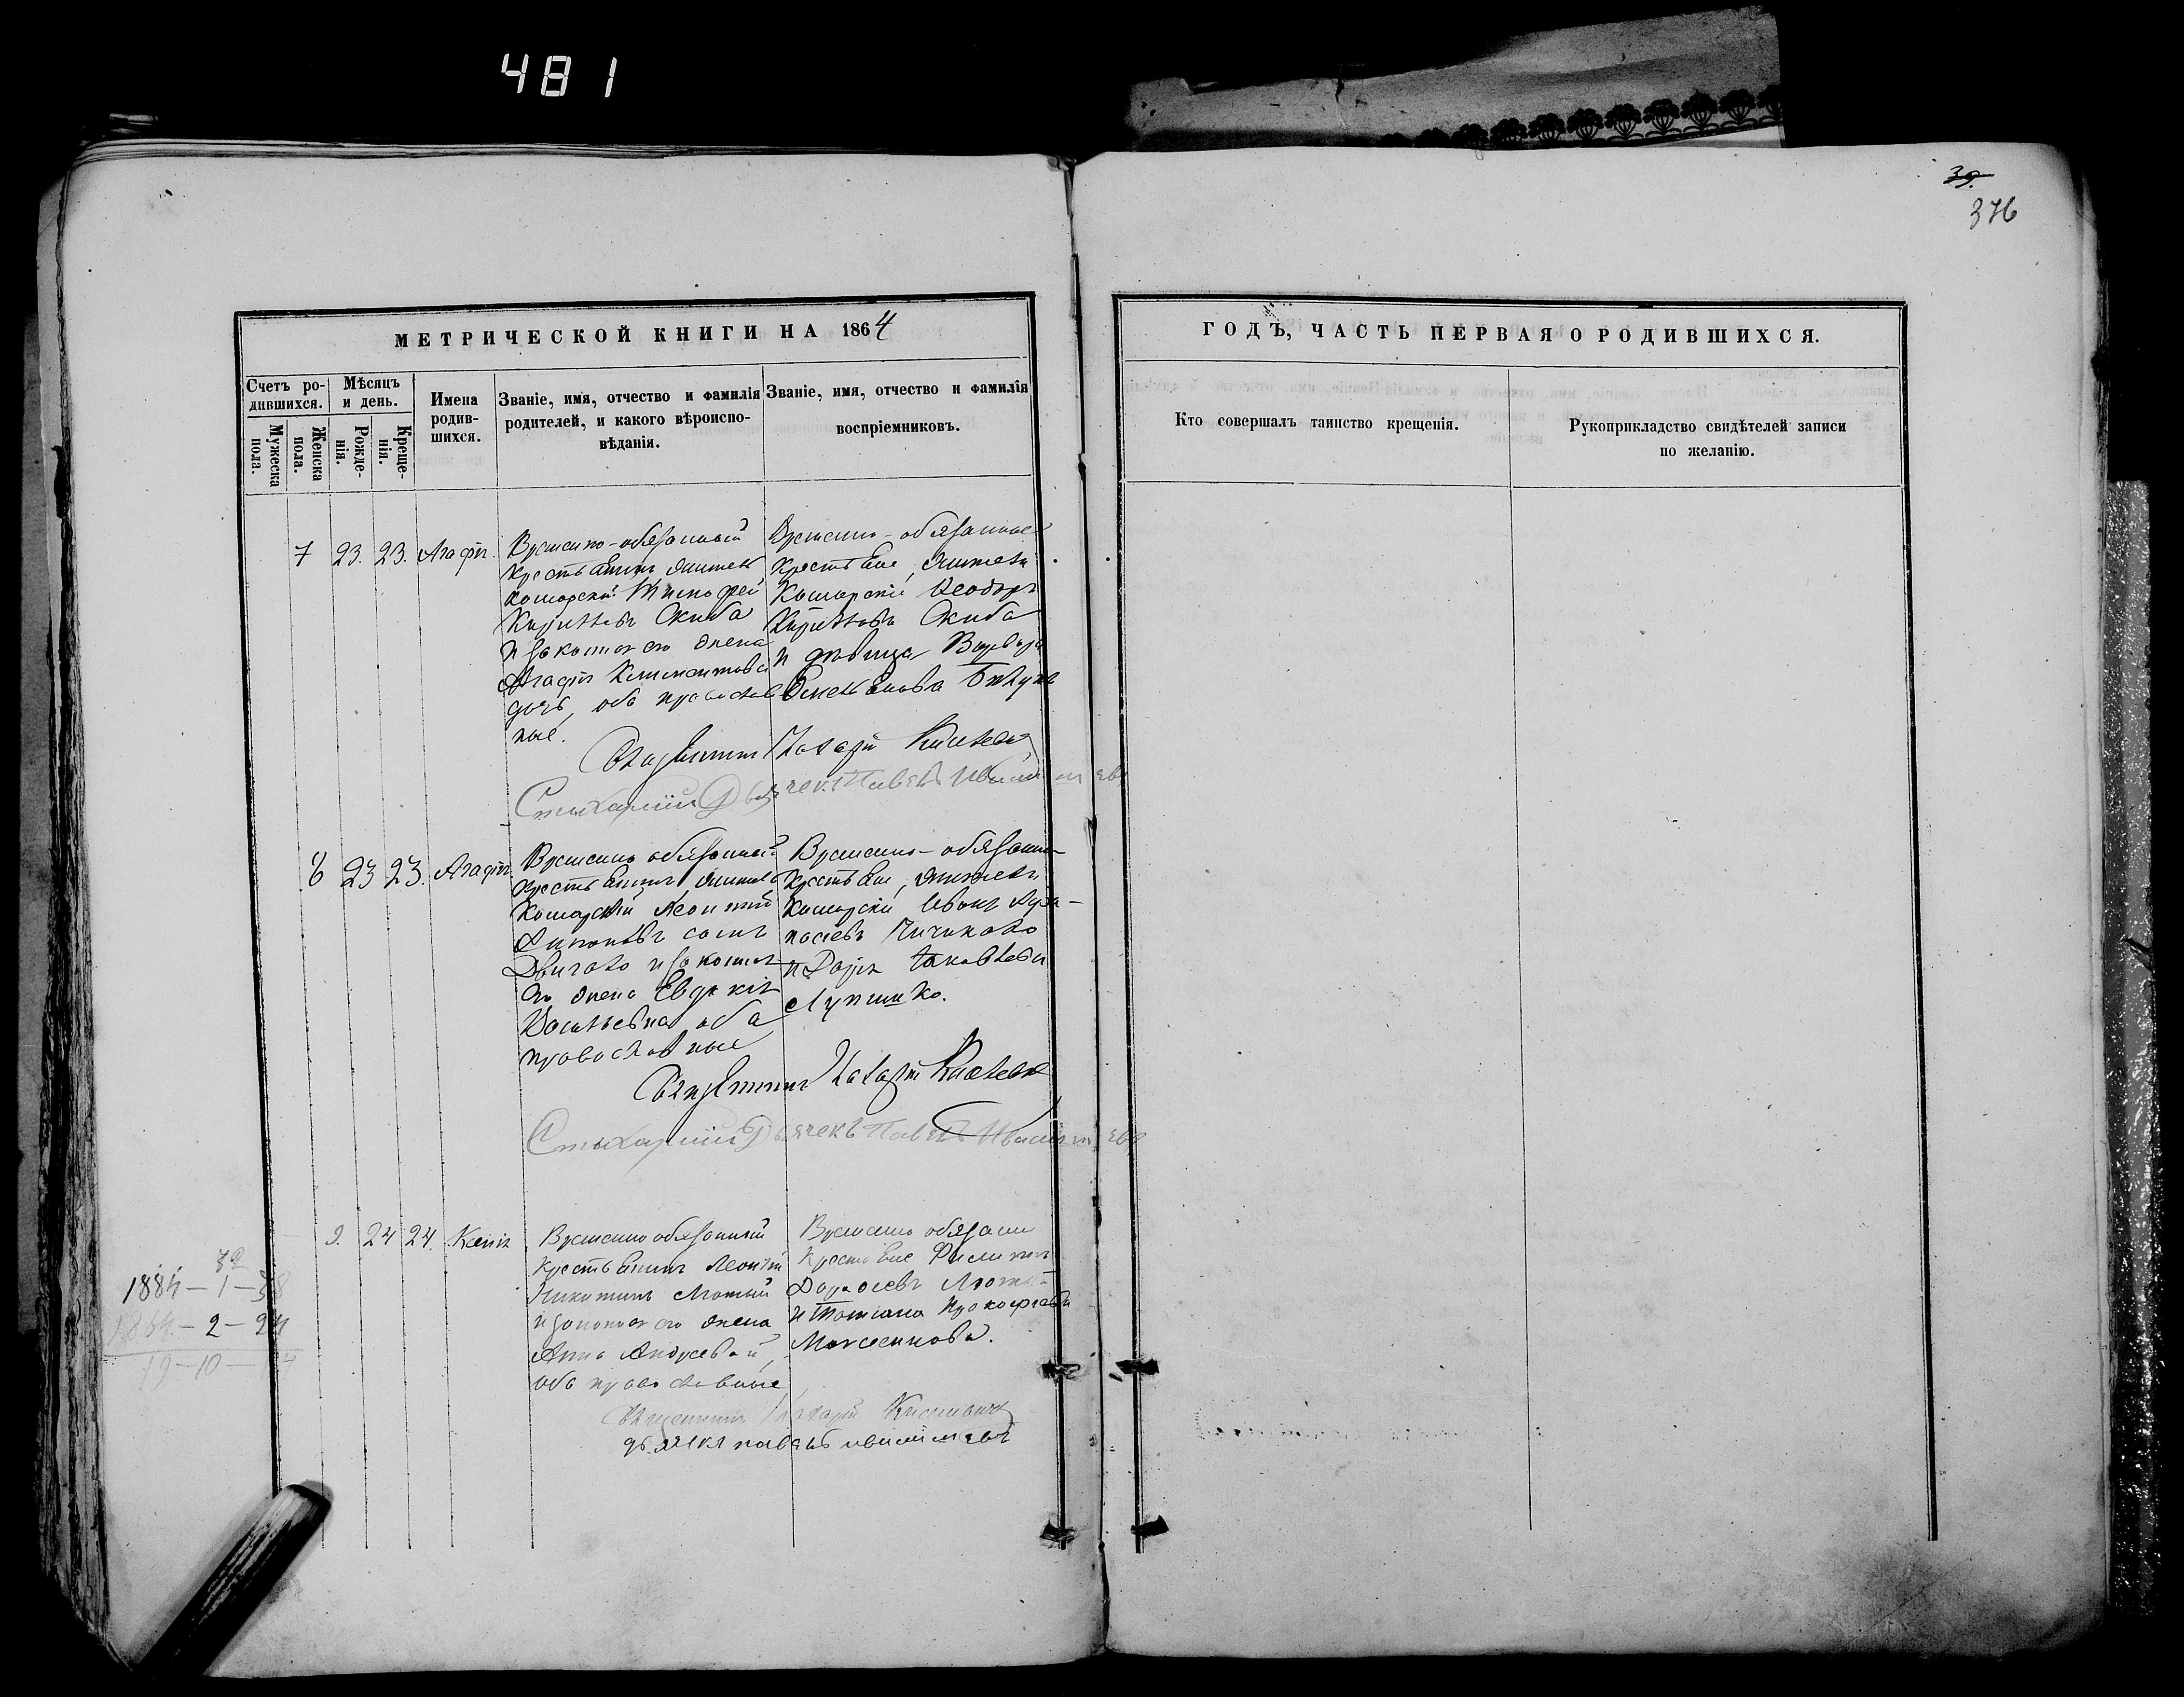 481
39.
376
МЕТРИЧЕСКОЙ КНИГИ НА 1864
ГОДЪ, ЧАСТЬ ПЕРВАЯ О РОДИВШИХСЯ.
Счетъ ро-
дившихся.
Мужеска
пола.
Женска
пола.
Мѣсяцъ
и день.
Рожде-
нія.
Креще-
нія.
Имена
родив-
шихся.
Званіе, имя, отчество и фамилія
родителей, и какого вѣроиспо-
вѣданія.
Званіе, имя, отчество и фамилія
воспріемниковъ.
Кто совершалъ таинство крещенія.
Рукоприкладство свидѣтелей записи
по желанію.
7 23. 23. Агафія.
Временно-обязанный
крестьянинъ житель
Кошарскій Тимофей
Кирилловъ Скиба
и законная его жена
Агафія Климентова
дочь, оба православ
ные.
Временно-обязанные
крестьяне, жители
Кошарскіе Ѳеодоръ
Кирилловъ Скиба
и дѣвица Варвара
Емельянова
Священникъ Захарій
Стихарный Дьячекъ Павелъ
8 23 23. Агафія
Временно обязанный
крестьянинъ, житель
Кошарскій Леонтій
сынъ
и законная
его жена Евдокія
Васильевна оба
православные
Временно-обязанные
крестьяне, жители
Кошарскіе Иванъ
и Дарія Яковлева
Священникъ Захарій
Стихарный Дьячекъ Павелъ
9. 24 24. Ксенія
Временно обязанный
крестьянинъ Леонтій
Никитинъ Лютый
и законная его жена
Анна Андреева,
оба православные
Временно обязанные
крестьяне Филиппъ
Лютый
и Татіана Прокофіева
Моисеенкова.
Священникъ Захарій
дьячекъ павелъ
1884 — 1 — 38
1864. — 2 — 24
19 — 10 — 14